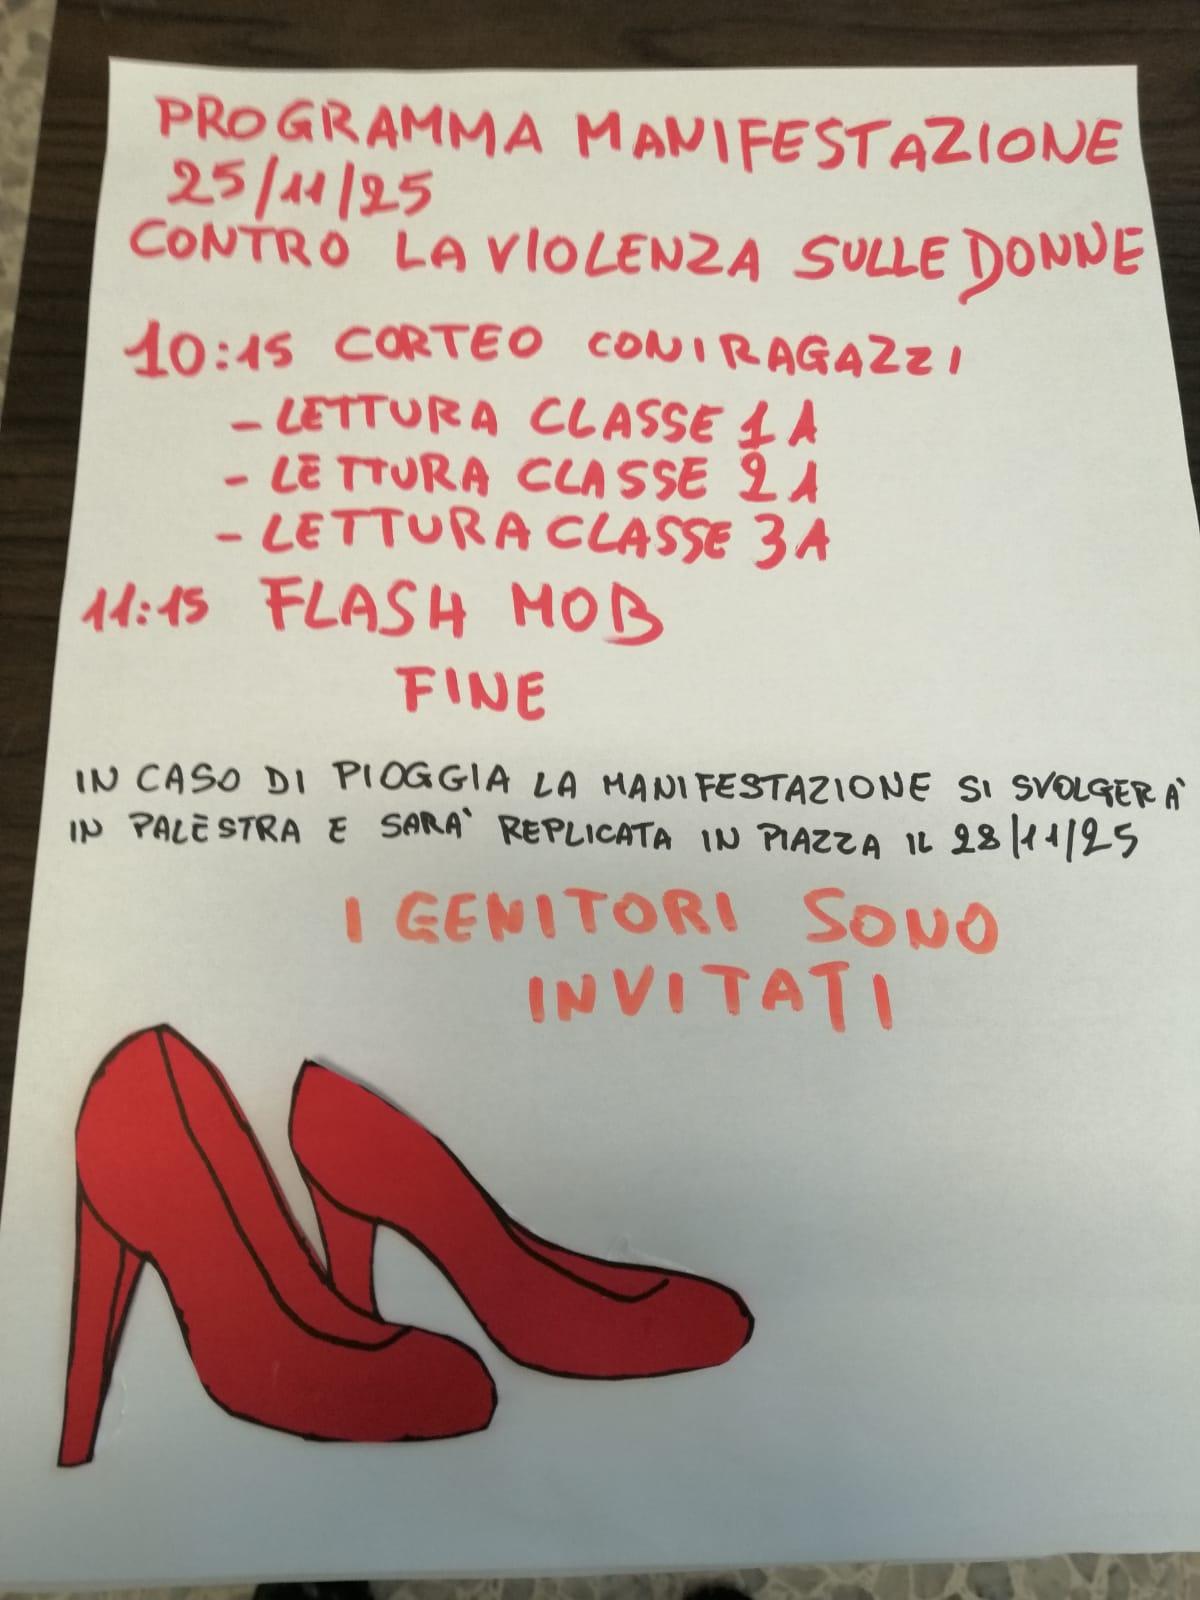 PROGRAMMA MANIFESTAZIONE
25/11/25
CONTRO LA VIOLENZA SULLE DONNE
10:15 CORTEO CON I RAGAZZI
- LETTURA CLASSE 1A
- LETTURA CLASSE 2A
- LETTURA CLASSE 3A
11:15 FLASH MOB
FINE
IN CASO DI PIOGGIA LA MANIFESTAZIONE SI SVOLGERA'
IN PALESTRA E SARA' REPLICATA IN PIAZZA IL 28/11/25
I GENITORI SONO
INVITATI